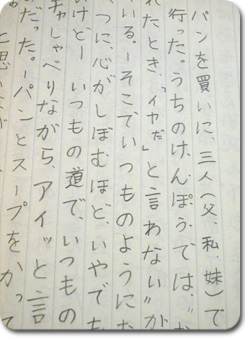 パンを買いに、三人(父、私、妹)で
行った。うちのけんぽうでは、"
れたとき、「イヤだ」と言わない"が
いる。ーそこでいつものように
つに、心がしぼむほど、いやでも
けどー いつもの道で、いつもの
ャしゃべりながら、アイッと言
だった。ーパンとスープをかって
と思い